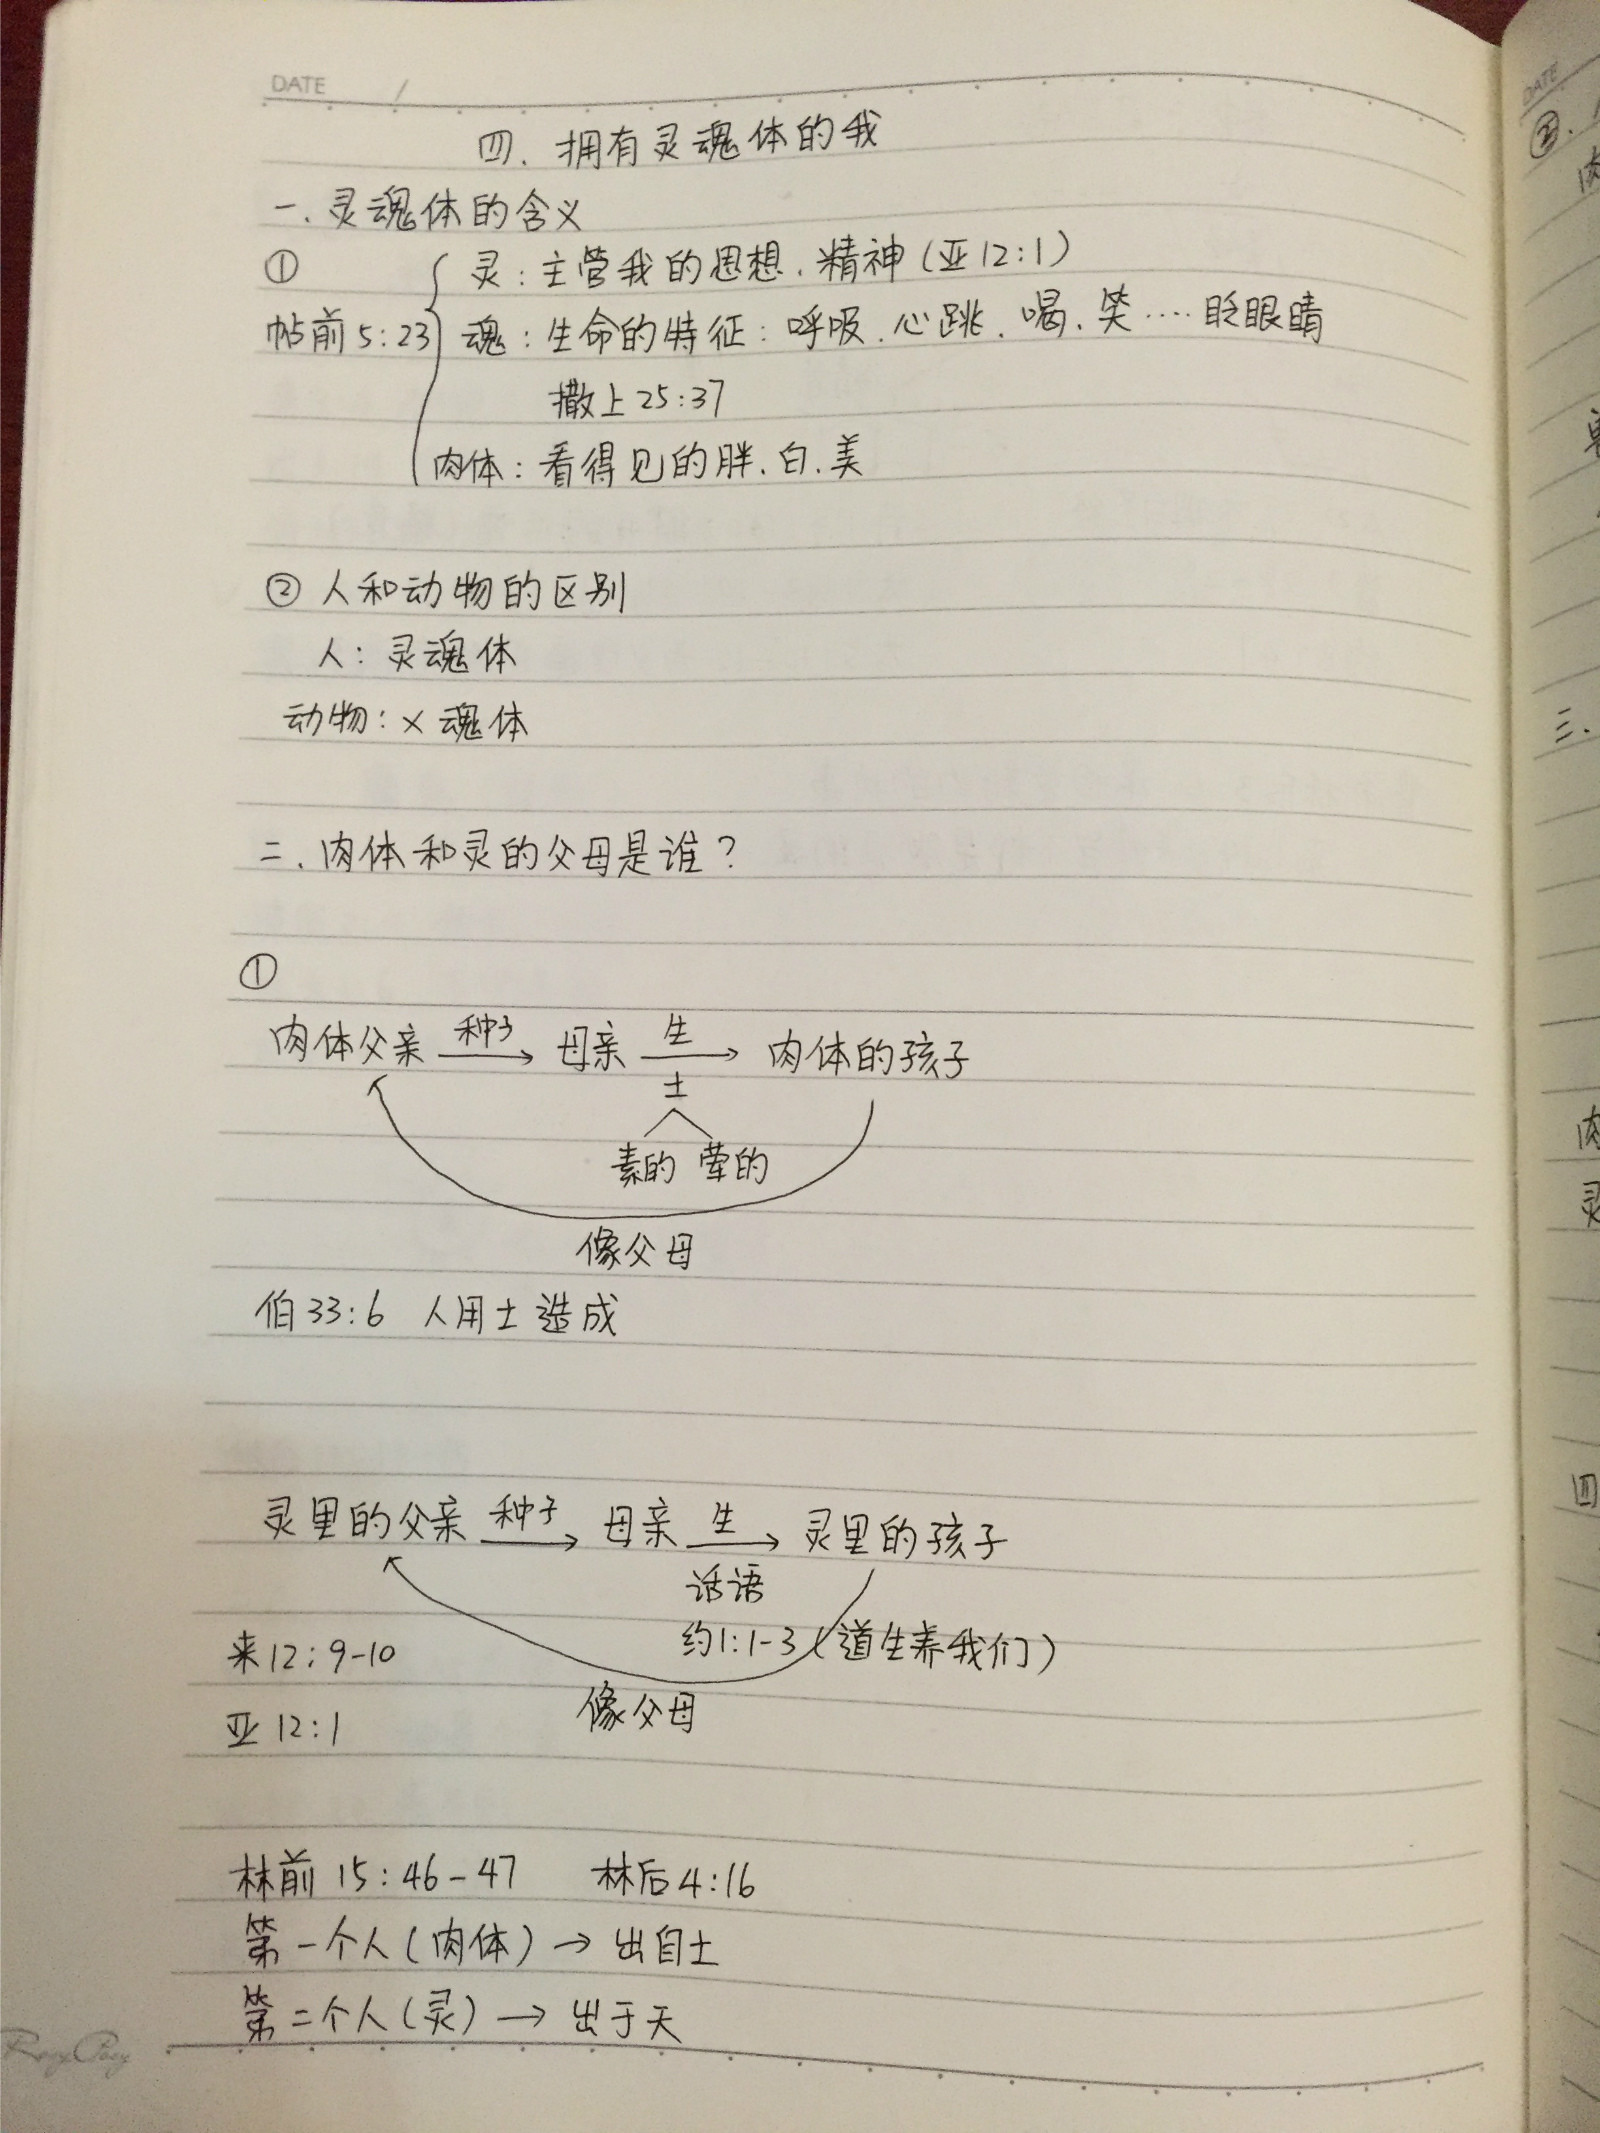 DATE /
四. 拥有灵魂体的我
一. 灵魂体的含义
① 灵: 主管我的思想. 精神 (亚12:1)
帖前5:23 魂: 生命的特征: 呼吸. 心跳. 喝. 笑····眨眼睛
撒上25:37
肉体: 看得见的胖. 白. 美
② 人和动物的区别
人: 灵魂体
动物: × 魂体
二. 肉体和灵的父母是谁?
①
肉体父亲 种子→ 母亲 生→ 肉体的孩子
土
素的 荤的
像父母
伯33:6 人用土造成
灵里的父亲 种子→ 母亲 生→ 灵里的孩子
话语
来12:9-10 约1:1-3 (道生养我们)
亚12:1 像父母
林前15:46-47 林后4:16
第一个人(肉体) → 出自土
第二个人(灵) → 出于天
DATE
三.
肉
灵
四